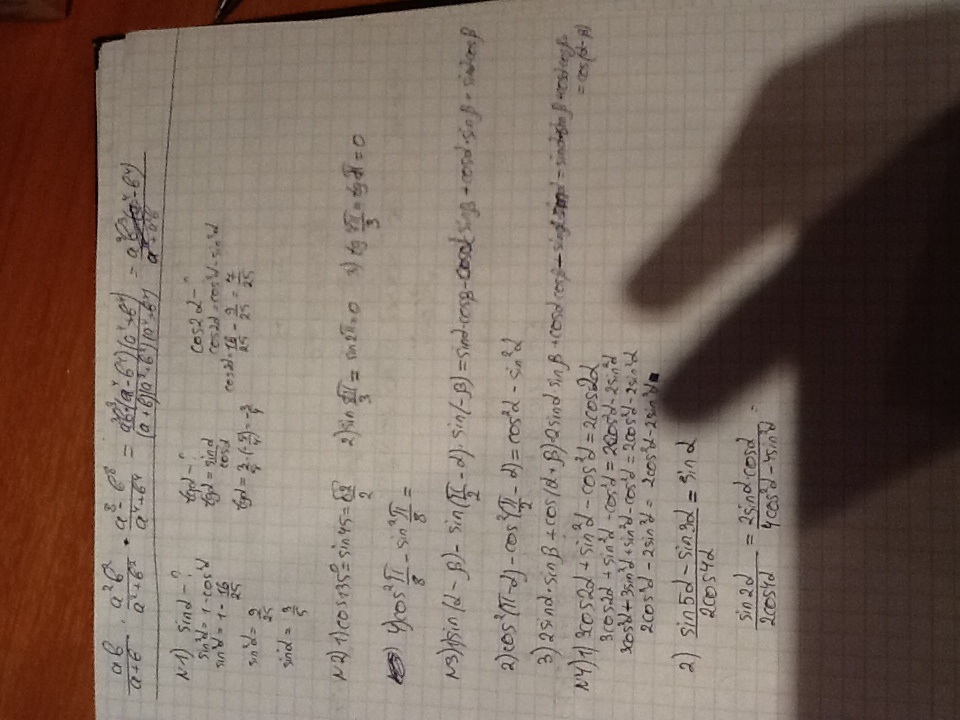 ab/(a+b) · a²b²/(a²+b²) · (a⁸-b⁸)/(a⁴+b⁴) = a³b³(a⁴-b⁴)(a⁴+b⁴)/((a+b)(a²+b²)(a⁴+b⁴)) =
N1) sinα-?
sin²α=1-cos²α
sin²α=1-16/25
sin²α=9/25
sinα=3/5
tgα-?
tgα=sinα/cosα
cos2α-?
cos2α=cos²α-sin²α
cos2α=16/25-9/25=7/25
N2) 1) cos135°=sin45=√2/2
2) sin = sin2π=0
3) tg =0
4) cos²π/8-sin²π/8=
N3) 1) sin(α-β)-sin(π/2-α)·sin(-β)=sinα·cosβ-cosα·sinβ+cosα·sinβ=sinαcosβ
2) cos²(π-α)-cos²(π/2-α)=cos²α-sin²α
3) 2sinα·sinβ+cos(α+β)=2sinα·sinβ+cosα·cosβ-sinβ·sinα=sinα·sinβ+cosα·cosβ
=cos(α-β)
N4) 1) 3cos2α+sin²α-cos²α=2cos2α
3cos2α+sin²α-cos²α=2cos²α-2sin²α
3cos²α+3sin²α+sin²α-cos²α=2cos²α-2sin²α
2cos²α-2sin²α=2cos²α-2sin²α
2) (sin5α-sin3α)/(2cos4α)=sinα
sin2α/(2cos4α)=2sinα·cosα/(4cos²α-4sin²α)=